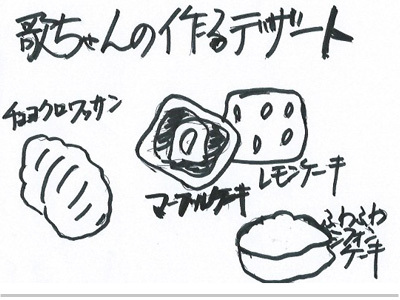 歌ちゃんの作るデザート
チョコクロワッサン
マーブルケーキ
レモンケーキ
ふわふわ
シフォン
ケーキ